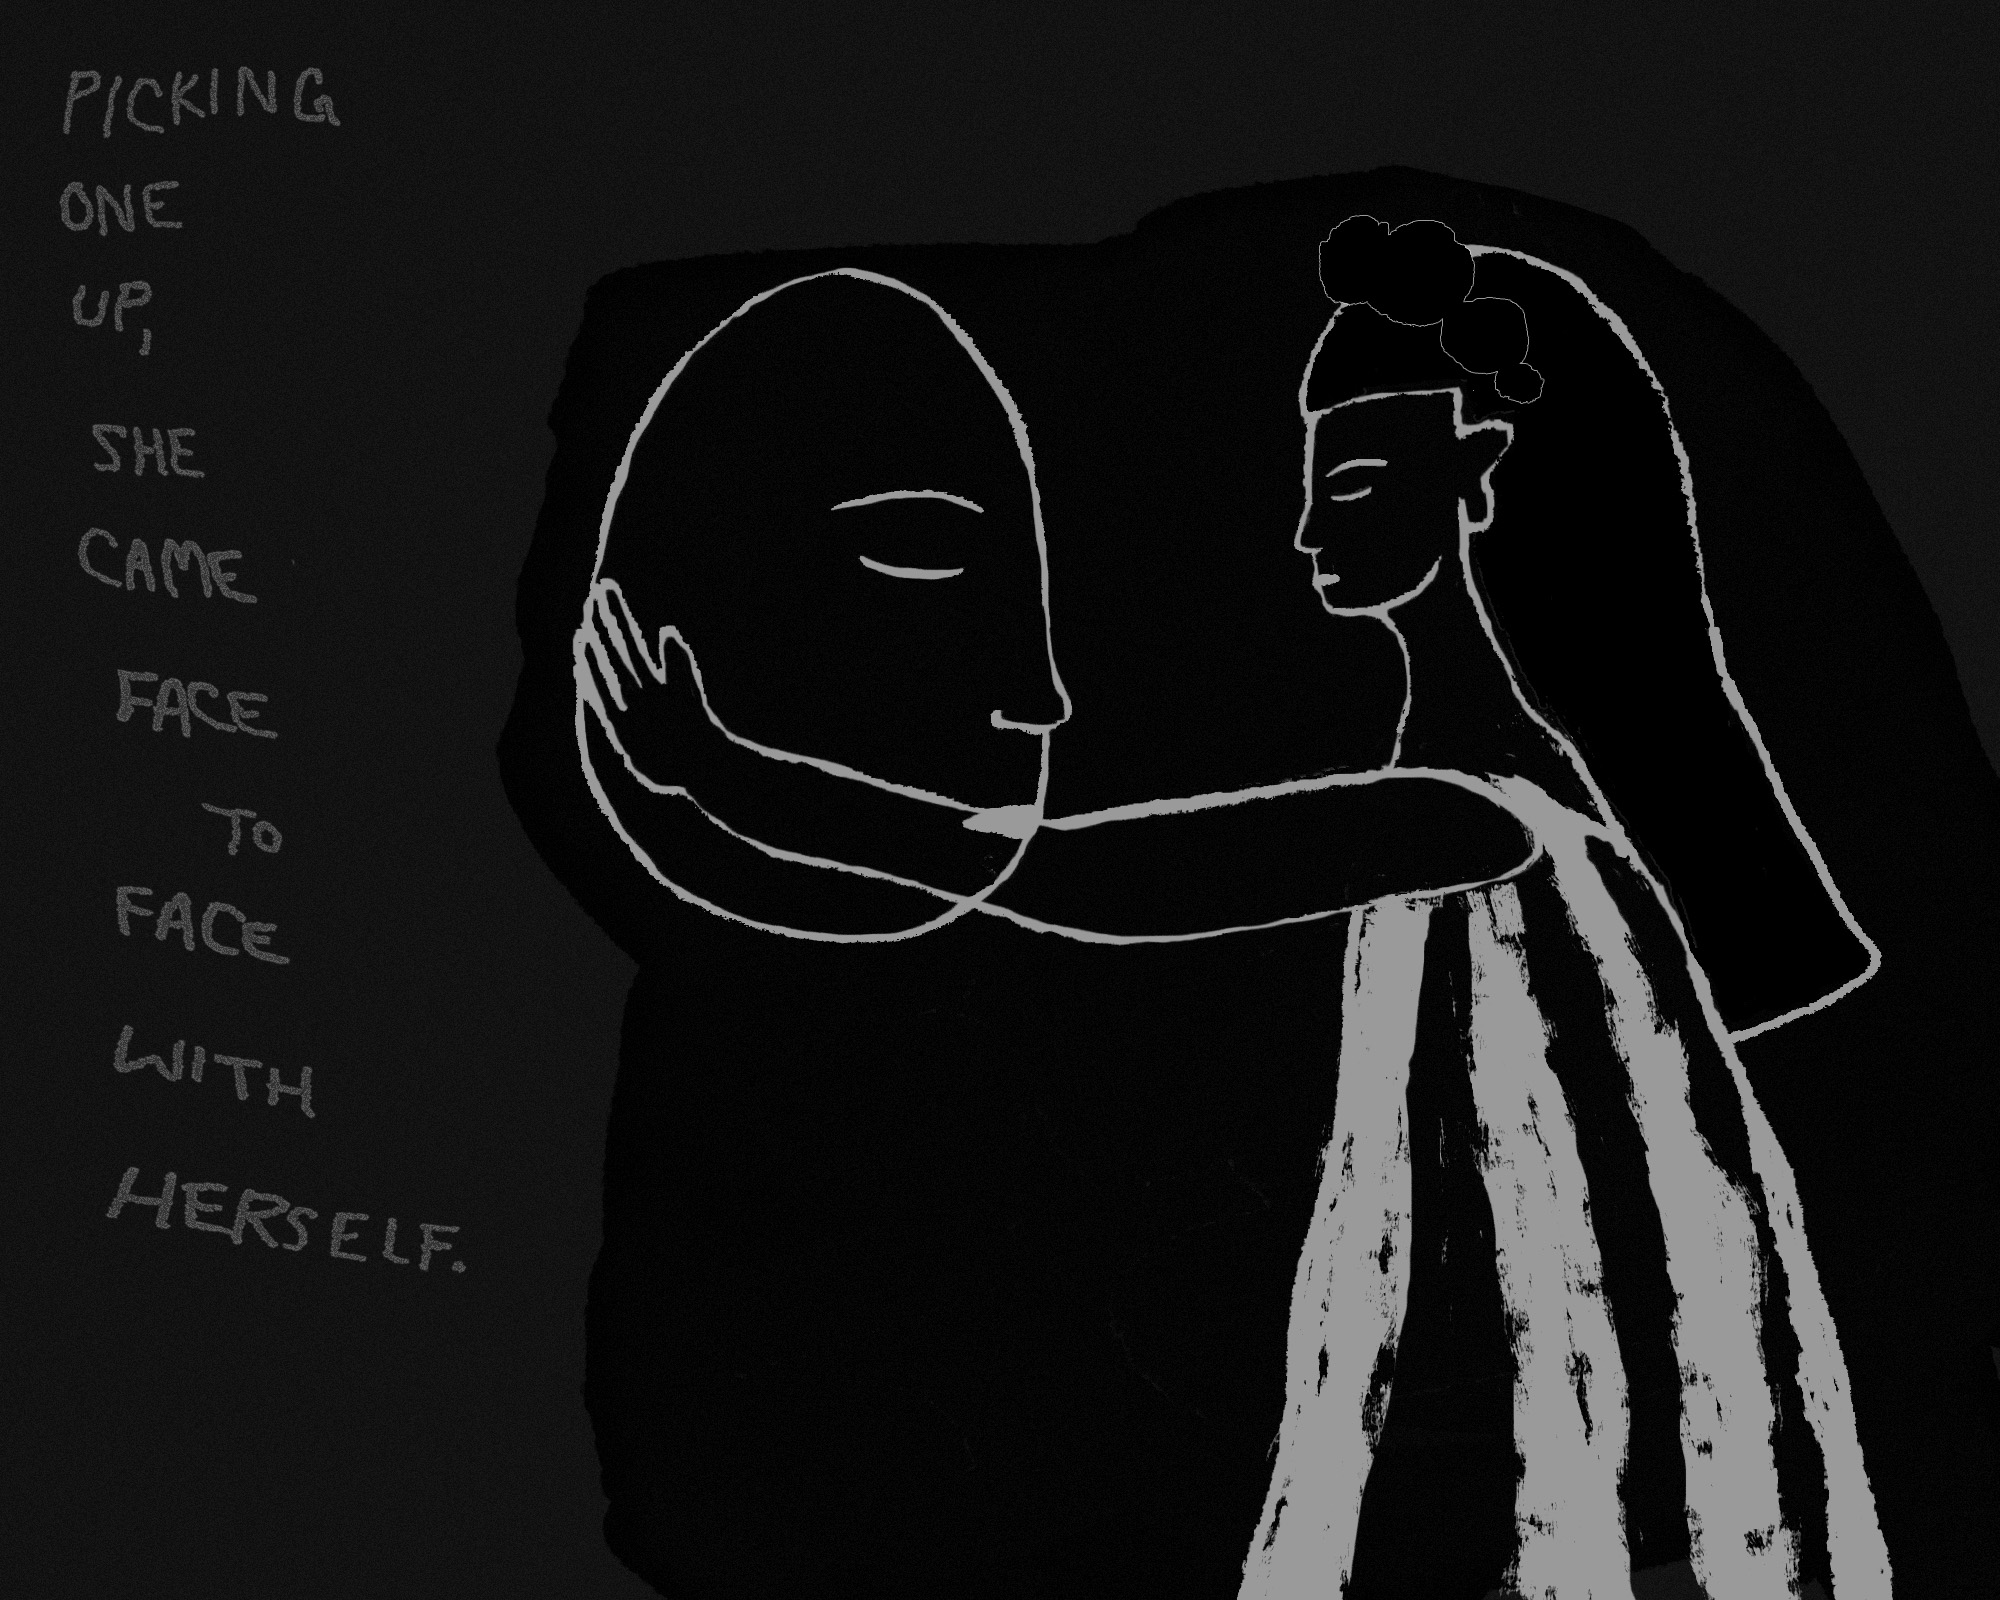 PICKING
ONE
UP,
SHE
CAME
FACE
TO
FACE
WITH
HERSELF.